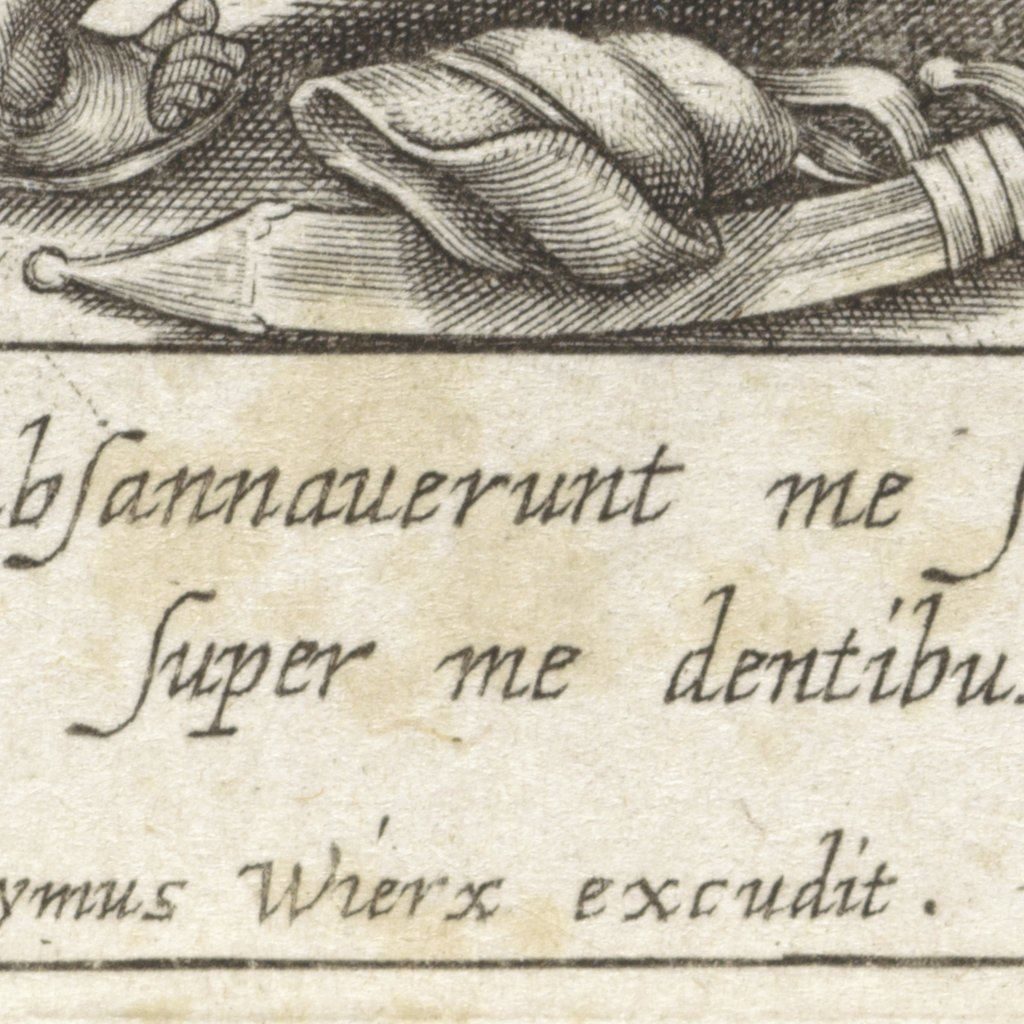 bſannauerunt me ſ
ſuper me dentibus
ymus Wierx excudit.